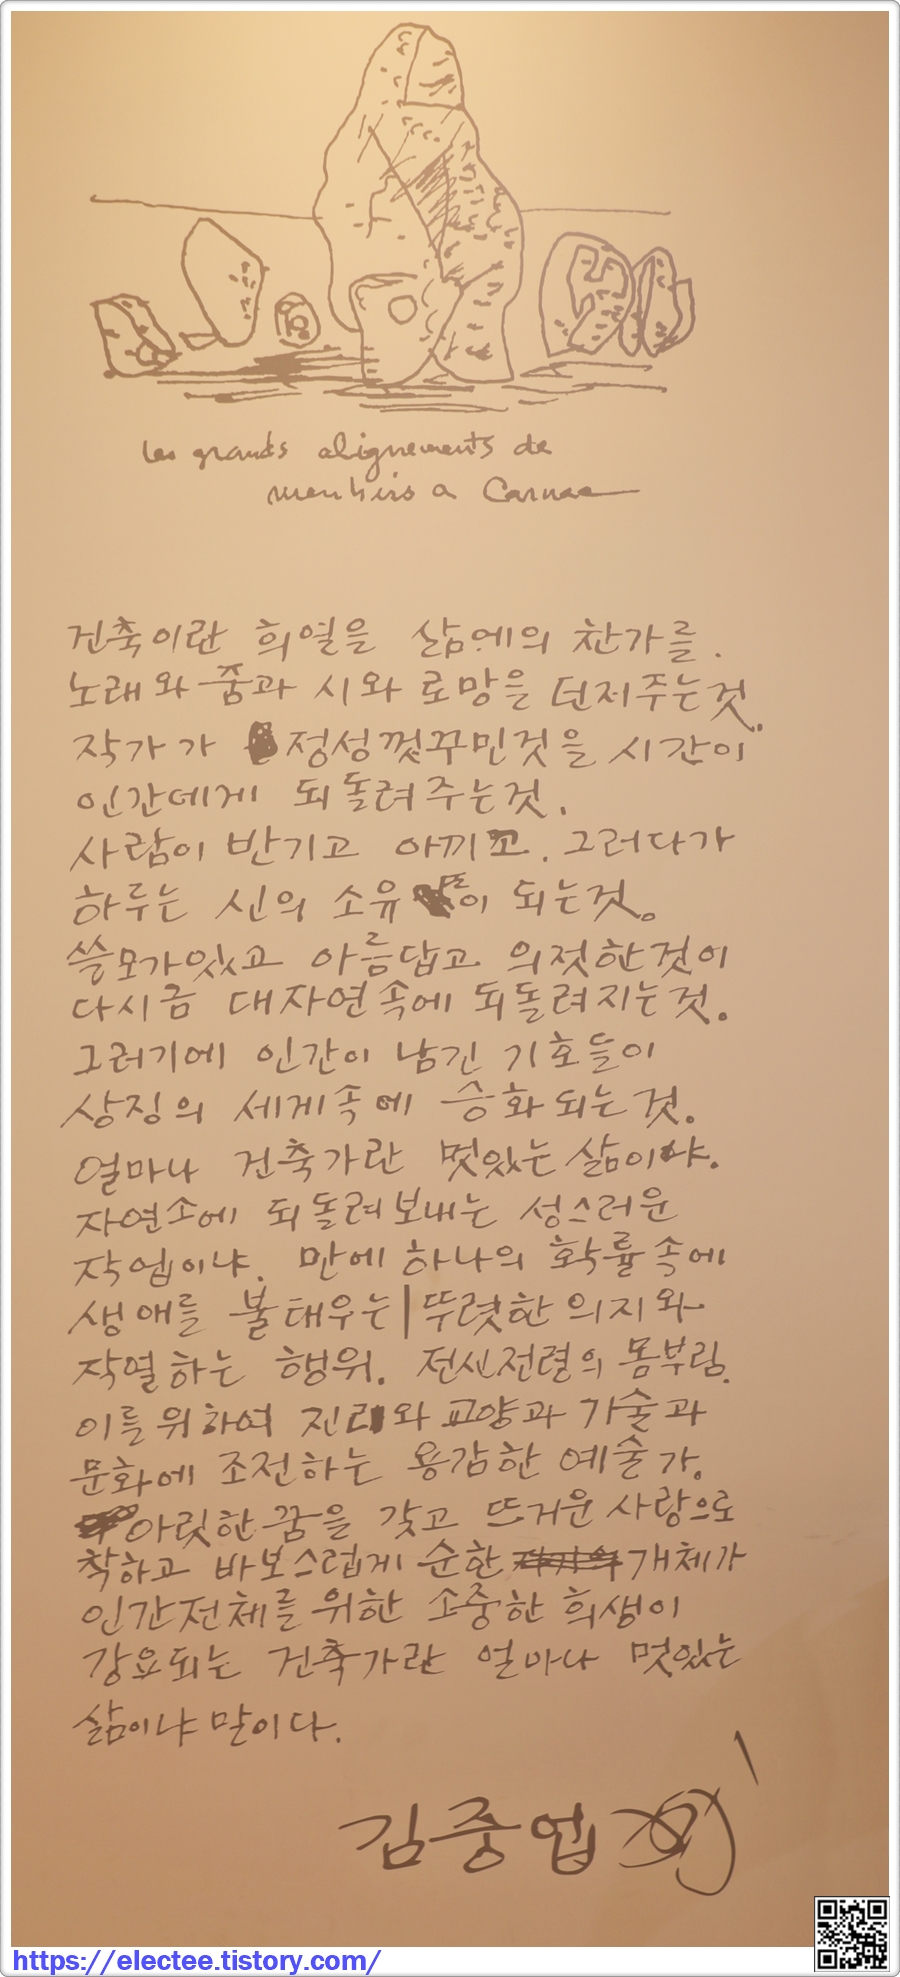 les grands alignements de
menhirs a Carnac
건축이란 희열을 삶에의 찬가를.
노래와 춤과 시와 로망을 던저주는것.
작가가 정성껏꾸민것을 시간이
인간에게 되돌려주는것.
사람이 반기고 아끼고. 그러다가
하루는 신의 소유들이 되는것.
쓸모가있고 아름답고 의젓한것이
다시금 대자연속에 되돌려지는것.
그러기에 인간이 남긴 기호들이
상징의 세계속에 승화되는 것.
얼마나 건축가란 멋있는 삶이야.
자연소에 되돌려보내는 성스러운
작업이냐. 만에 하나의 확률속에
생애를 불태우는 뚜렷한 의지와
작열하는 행위. 전신전령의 몸부림.
이를위하여 진리와 교양과 기술과
문화에 조전하는 용감한 예술가.
아릿한꿈을 갖고 뜨거운 사랑으로
착하고 바보스럽게 순한 개체가
인간전체를 위한 소중한 희생이
강요되는 건축가란 얼마나 멋있는
삶이냐 말이다.
김중업
https://electee.tistory.com/